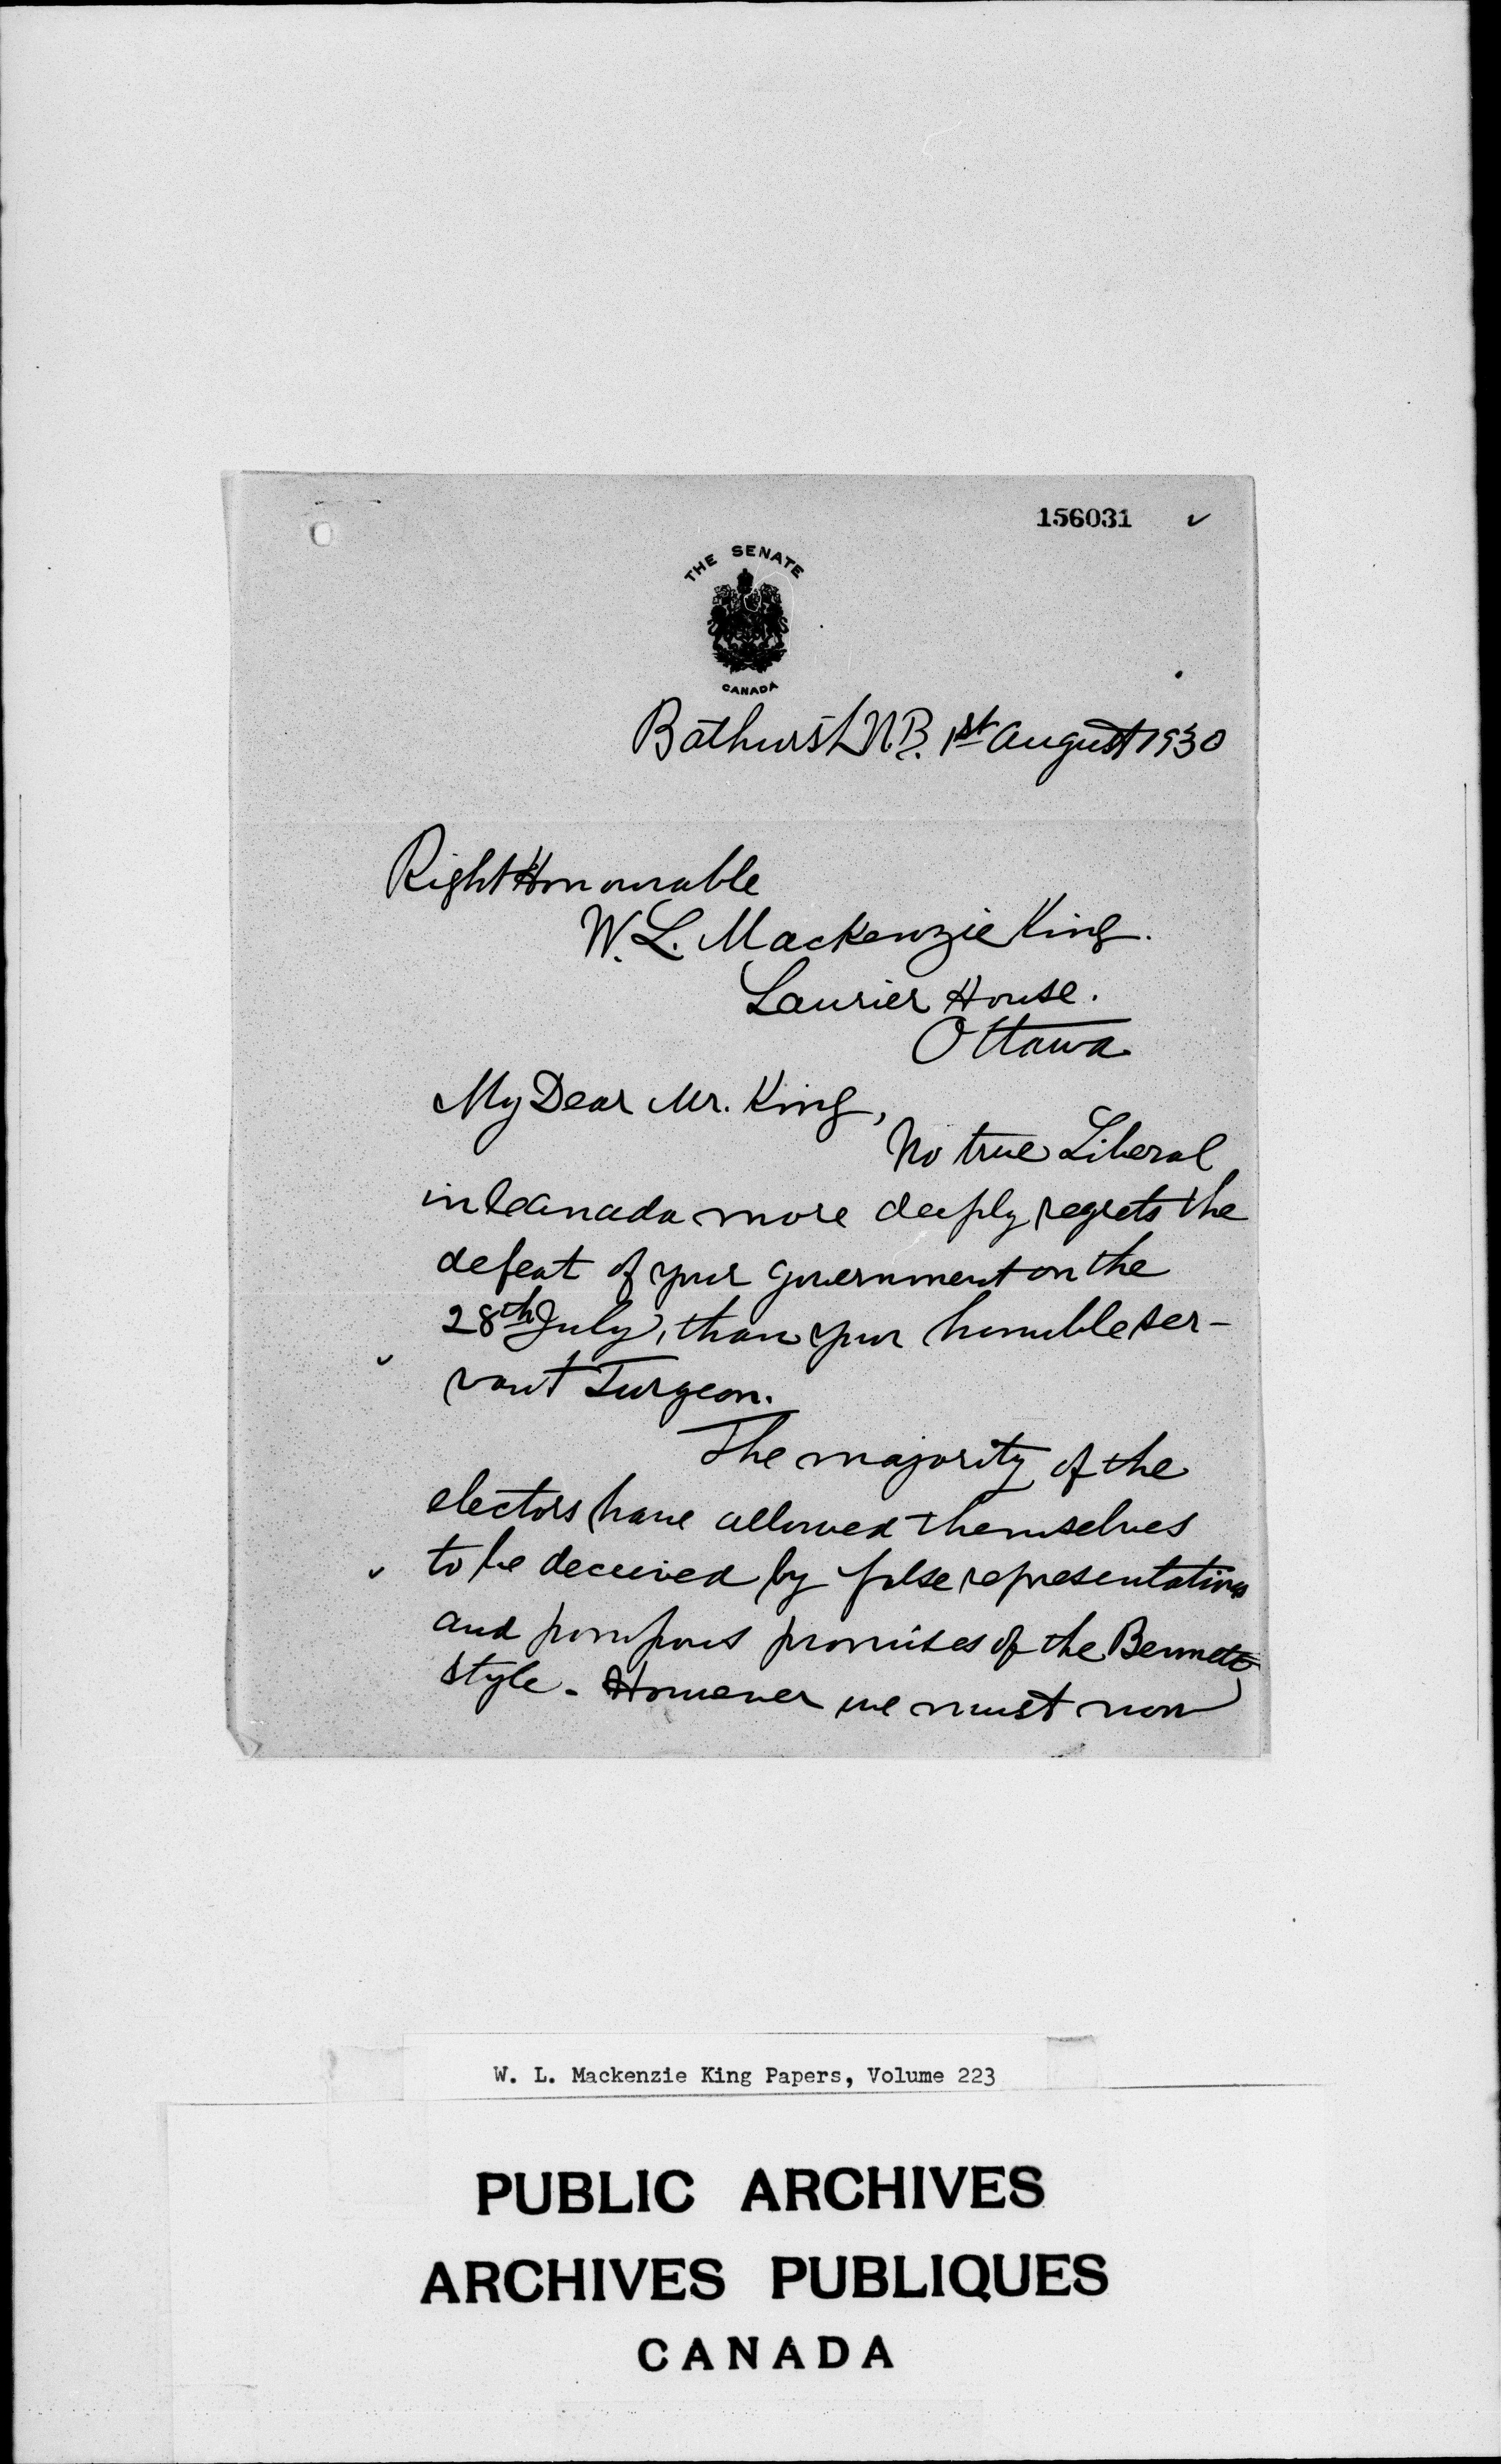 156031 ✓
THE SENATE
CANADA
Bathurst N.B. 1st August 1930
Right Honourable
W. L. Mackenzie King.
Laurier House.
Ottawa
My Dear Mr. King,
No true Liberal
in Canada more deeply regrets the
defeat of your government on the
28th July, than your humble ser-
vant Turgeon.
The majority of the
electors have allowed themselves
to be deceived by false representations
and pompous promises of the Bennett
style. However we must now
W. L. Mackenzie King Papers, Volume 223
PUBLIC ARCHIVES
ARCHIVES PUBLIQUES
CANADA